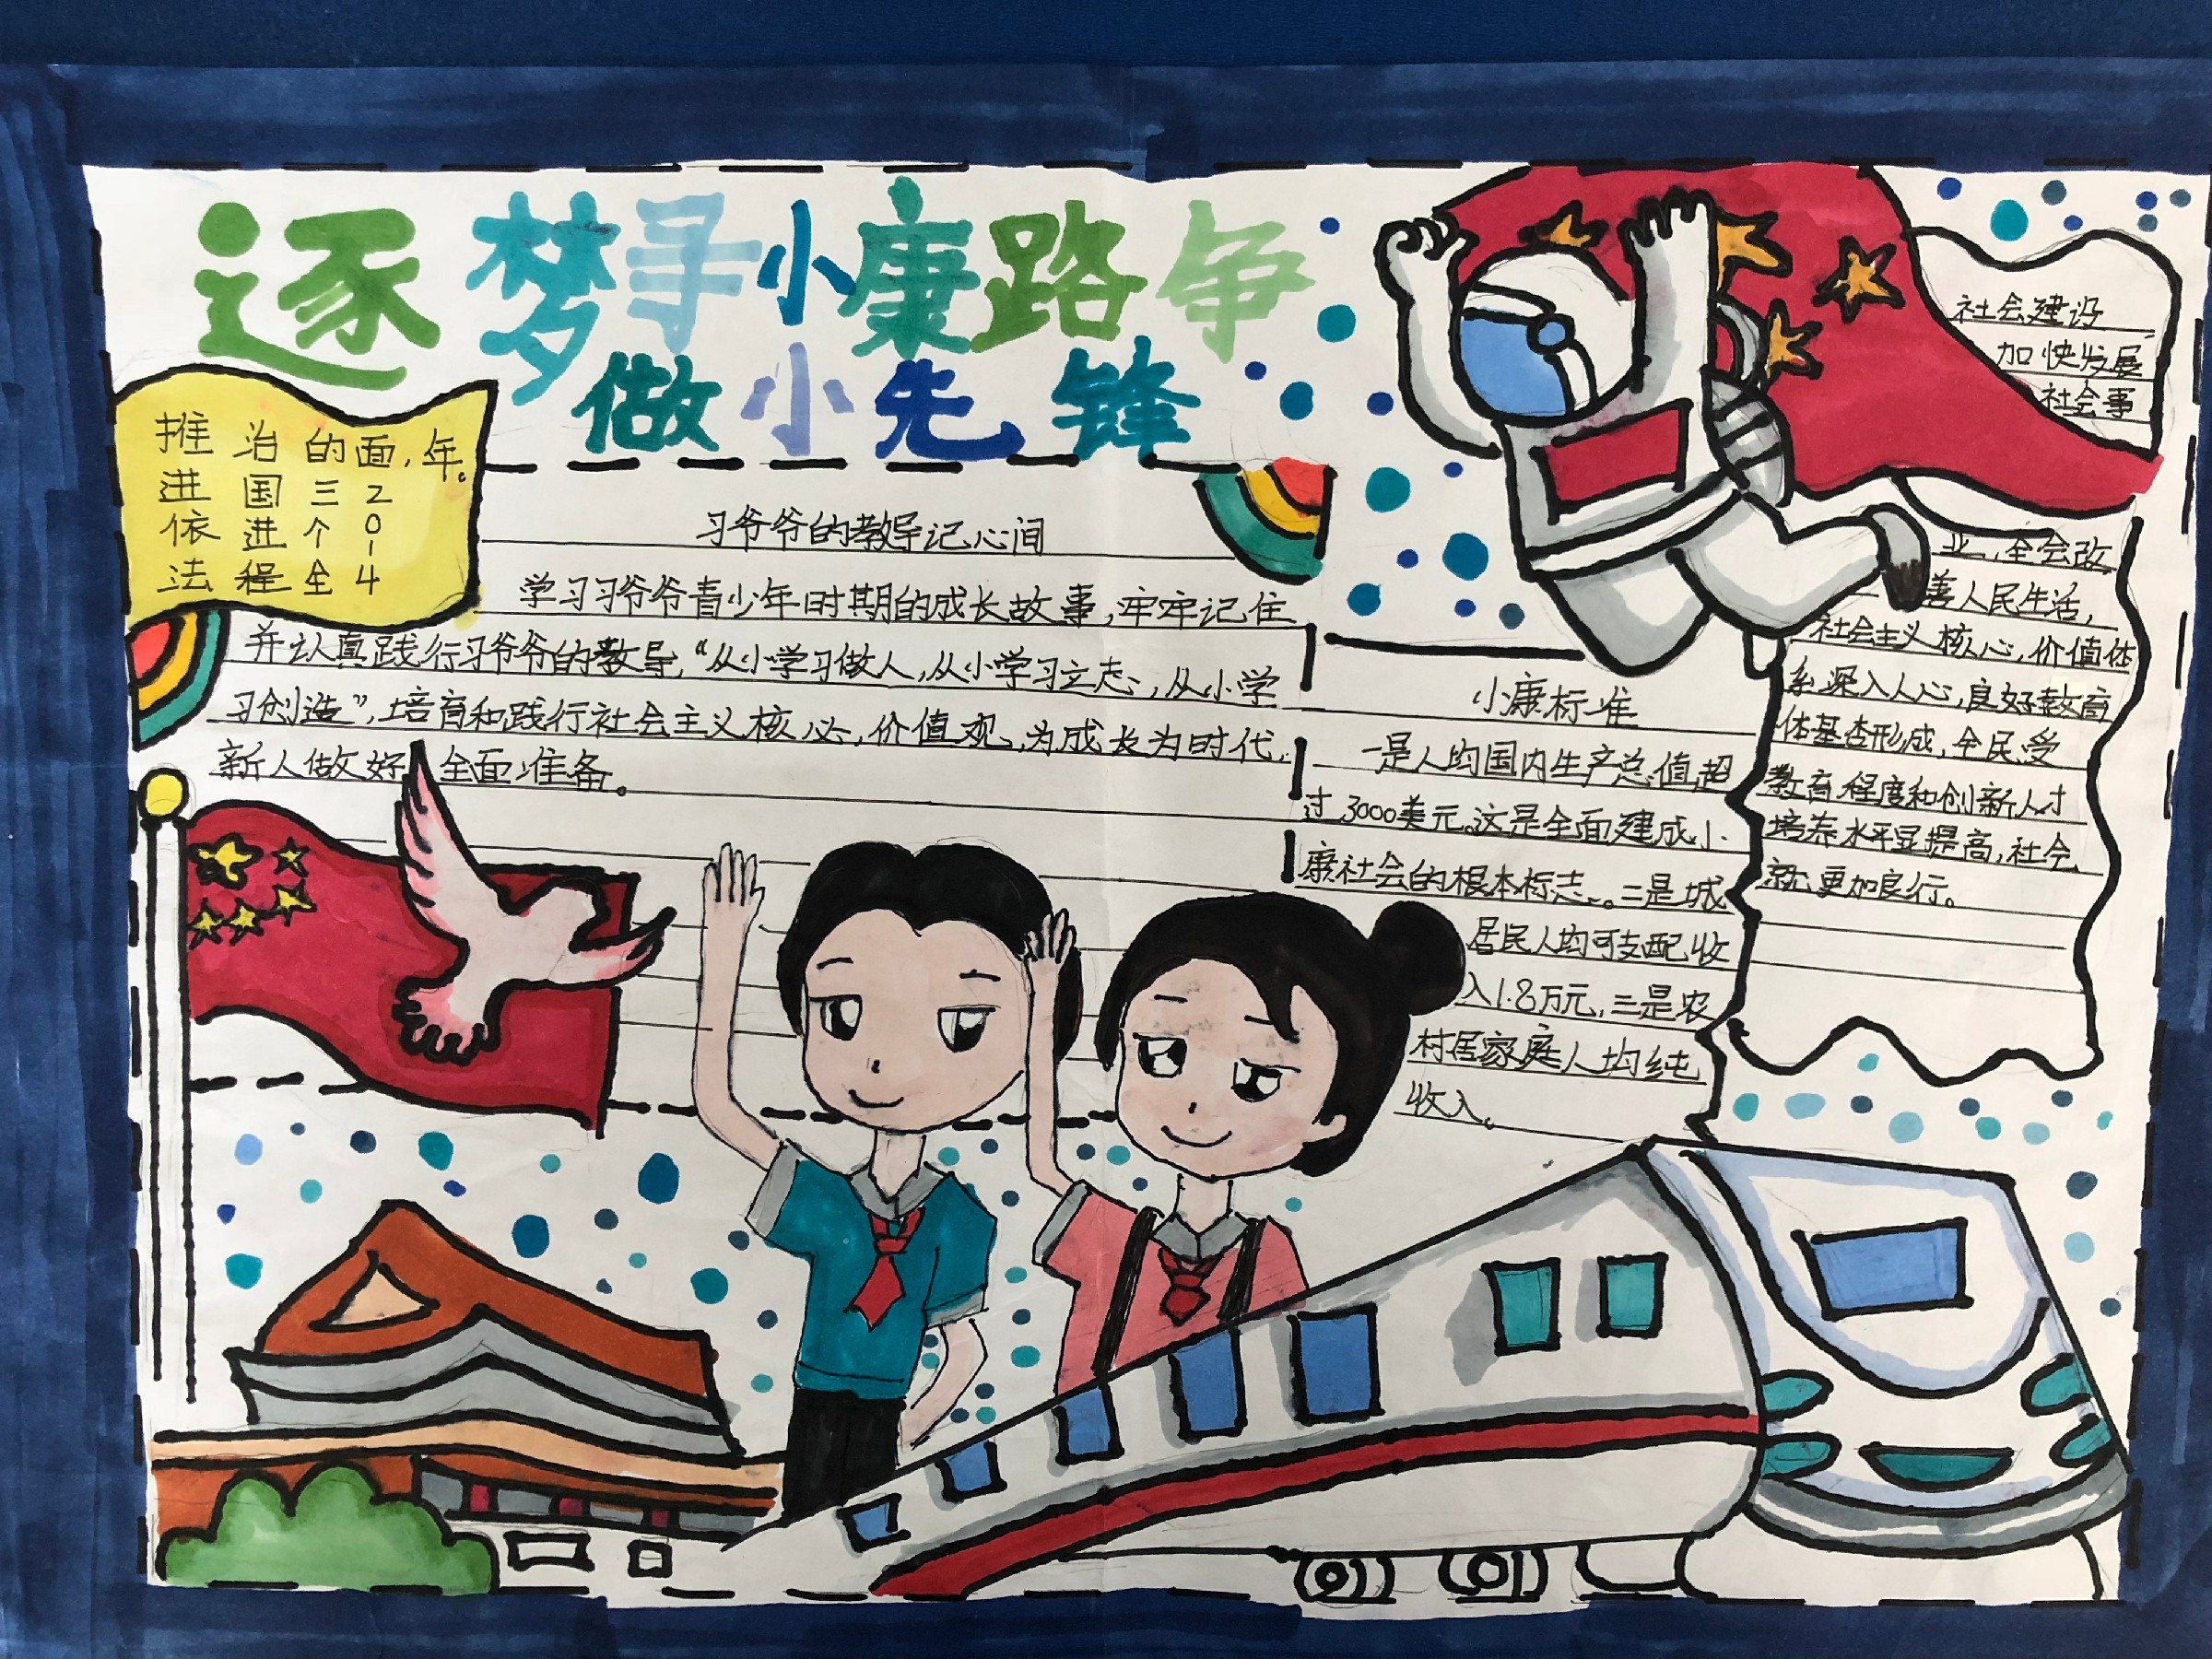 逐梦寻小康路争
做小先锋
推进依法
治国进程
的三个全
面,2014
年。
习爷爷的教导记心间
学习习爷爷青少年时期的成长故事,牢牢记住
并认真践行习爷爷的教导,“从小学习做人,从小学习立志,从小学
习创造”,培育和践行社会主义核心,价值观,为成长为时代
新人做好全面准备。
小康标准
一是人均国内生产总值超
过3000美元。这是全面建成小
康社会的根本标志。二是城
居民人均可支配收
入1.8万元,三是农
村居家庭人均纯
收入。
社会建设
加快发展
社会事
业,全会改
善人民生活,
社会主义核心,价值体
系深入人心,良好教育
体基杏形成,全民受
教育程度和创新人才
培养水平显提高,社会
就更加良行。